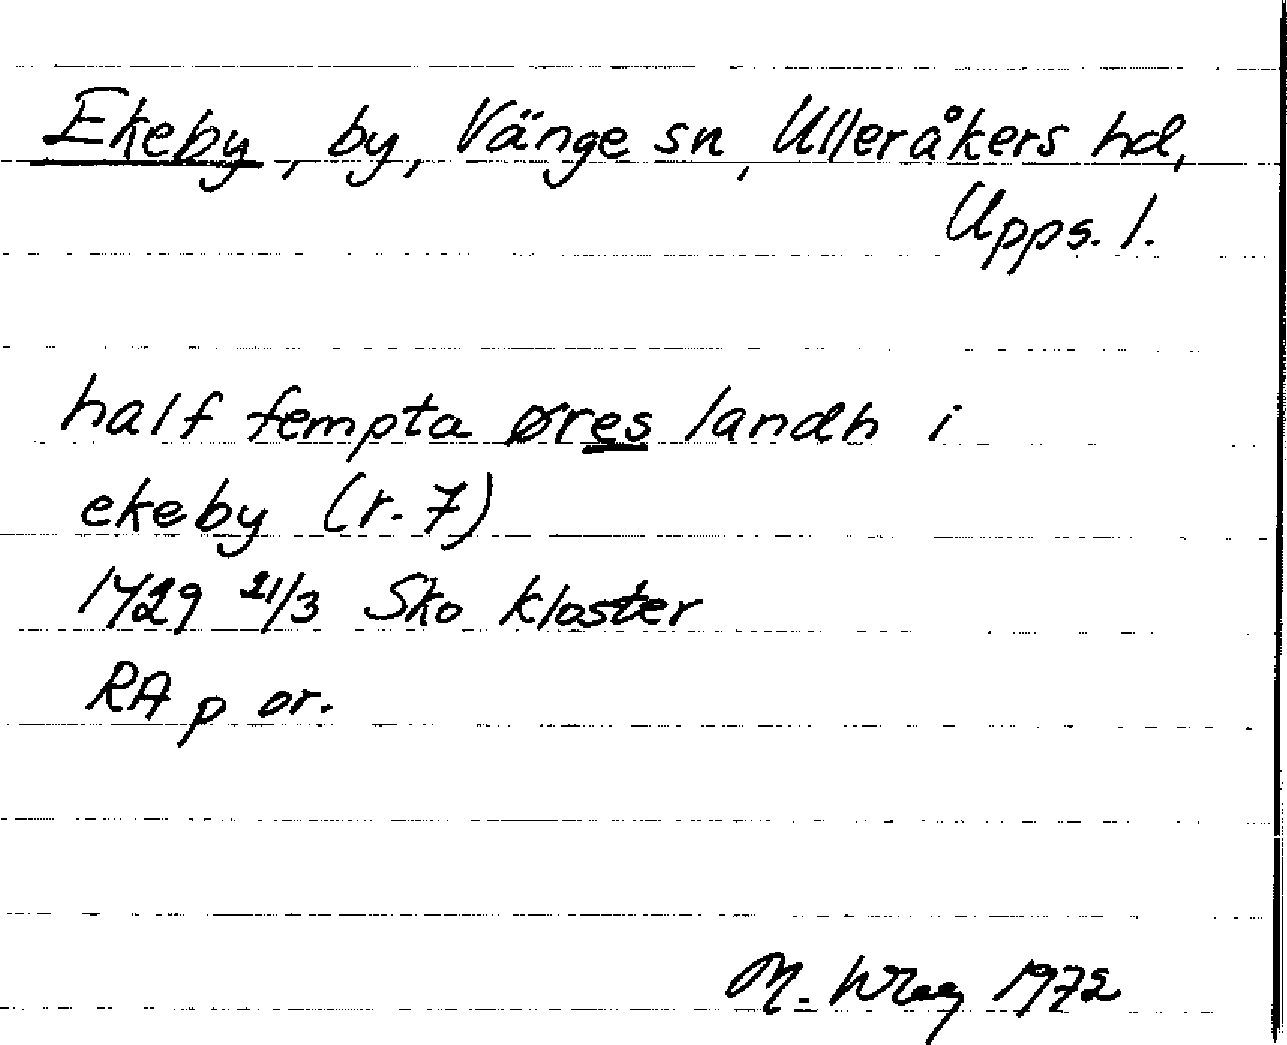 Ekeby, by, Vänge sn, Ulleråkers hd,
Upps. l.
half fempta øres landh i
ekeby (r. 7)
1429 21/3 Sko kloster
RA p or.
M. 1972